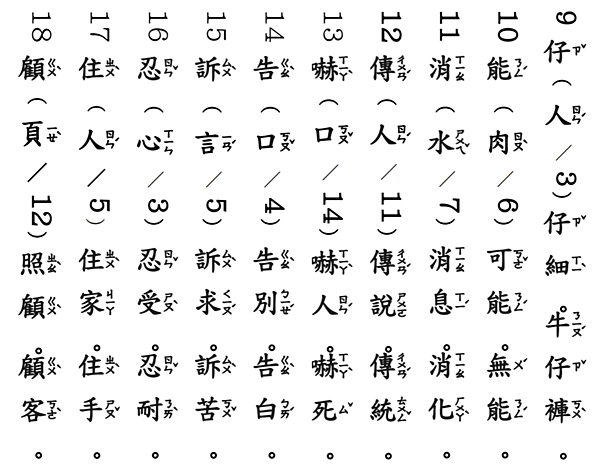 9仔ㄗˇ（人ㄖㄣˊ／3）仔ㄗˇ細ㄒㄧˋ。牛ㄋㄧㄡˊ仔ㄗˇ褲ㄎㄨˋ。
10能ㄋㄥˊ（肉ㄖㄡˋ／6）可ㄎㄜˇ能ㄋㄥˊ。無ㄨˊ能ㄋㄥˊ。
11消ㄒㄧㄠ（水ㄕㄨㄟˇ／7）消ㄒㄧㄠ息ㄒㄧˊ。消ㄒㄧㄠ化ㄏㄨㄚˋ。
12傳ㄔㄨㄢˊ（人ㄖㄣˊ／11）傳ㄔㄨㄢˊ說ㄕㄨㄛ。傳ㄔㄨㄢˊ統ㄊㄨㄥˇ。
13嚇ㄒㄧㄚˋ（口ㄎㄡˇ／14）嚇ㄒㄧㄚˋ人ㄖㄣˊ。嚇ㄒㄧㄚˋ死ㄙˇ。
14告ㄍㄠˋ（口ㄎㄡˇ／4）告ㄍㄠˋ別ㄅㄧㄝˊ。告ㄍㄠˋ白ㄅㄞˊ。
15訴ㄙㄨˋ（言ㄧㄢˊ／5）訴ㄙㄨˋ求ㄑㄧㄡˊ。訴ㄙㄨˋ苦ㄎㄨˇ。
16忍ㄖㄣˇ（心ㄒㄧㄣ／3）忍ㄖㄣˇ受ㄕㄡˋ。忍ㄖㄣˇ耐ㄋㄞˋ。
17住ㄓㄨˋ（人ㄖㄣˊ／5）住ㄓㄨˋ家ㄐㄧㄚ。住ㄓㄨˋ手ㄕㄡˇ。
18顧ㄍㄨˋ（頁ㄧㄝˋ／12）照ㄓㄠˋ顧ㄍㄨˋ。顧ㄍㄨˋ客ㄎㄜˋ。